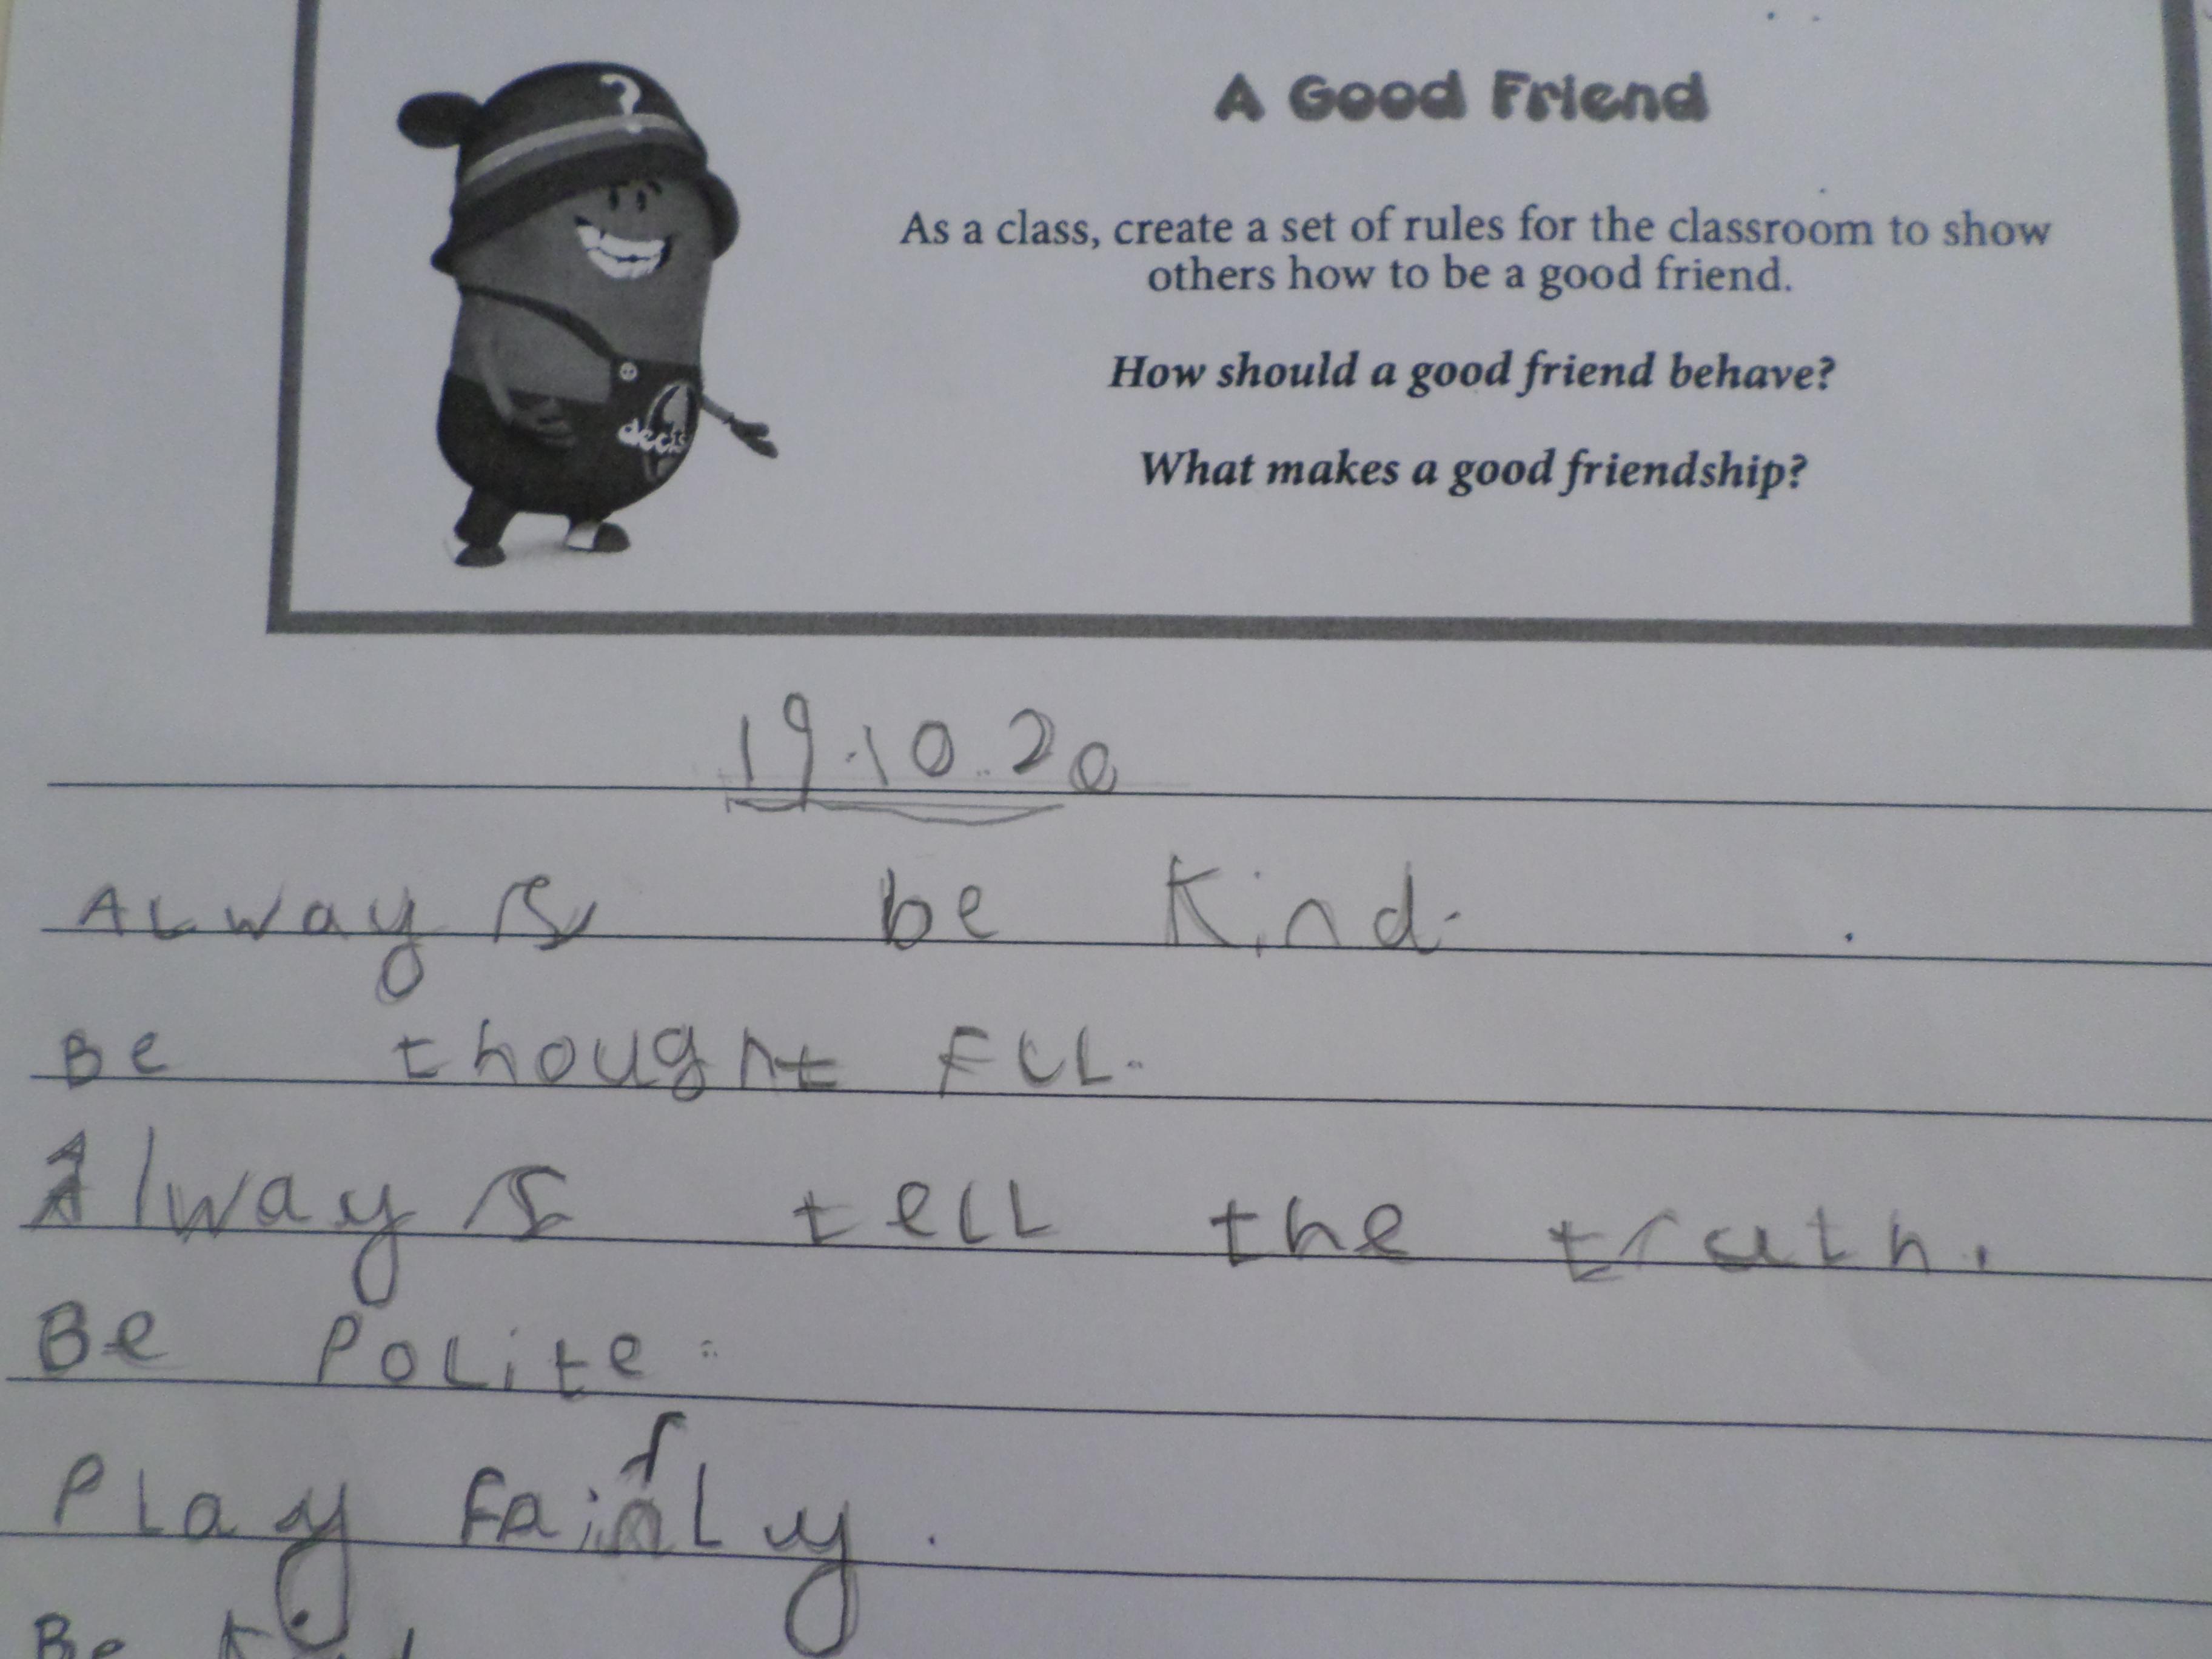 ?
A Good Friend
As a class, create a set of rules for the classroom to show
others how to be a good friend.
How should a good friend behave?
What makes a good friendship?
19.10.20
ALways be Kind.
Be thought FUL.
Always teLL the truth.
Be PoLite.
PLay FairLy.
Be